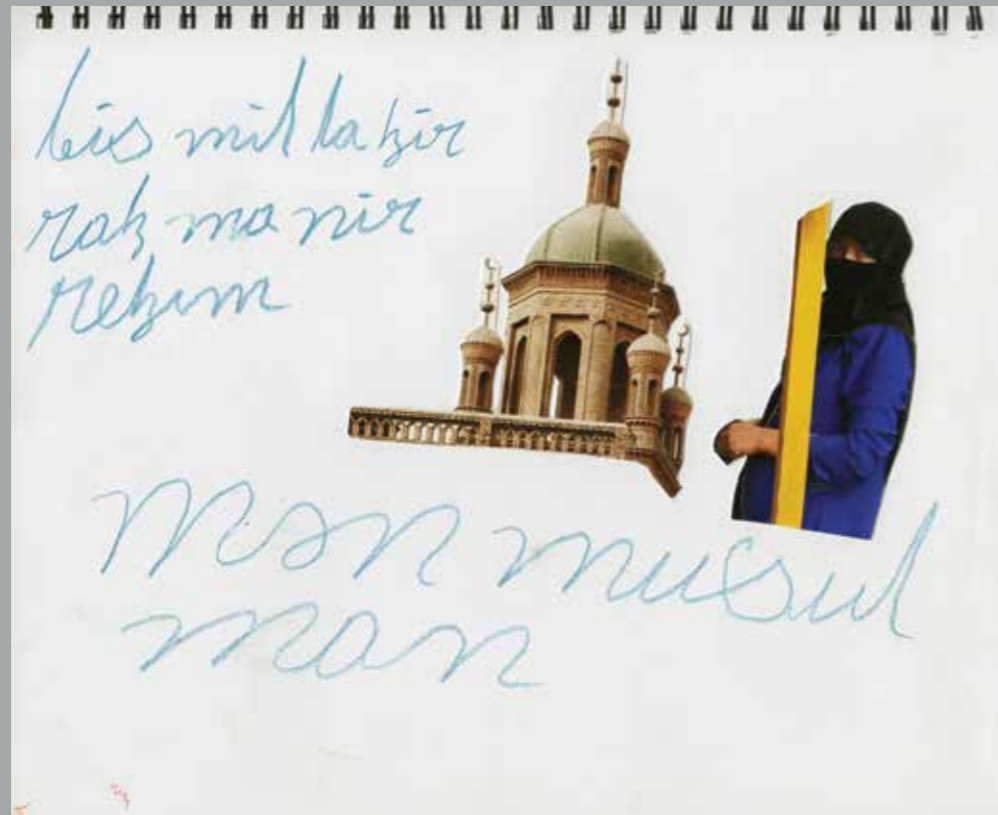 bis mil la ⱨir
raⱨ ma nir
reⱨim
Mən musul
man